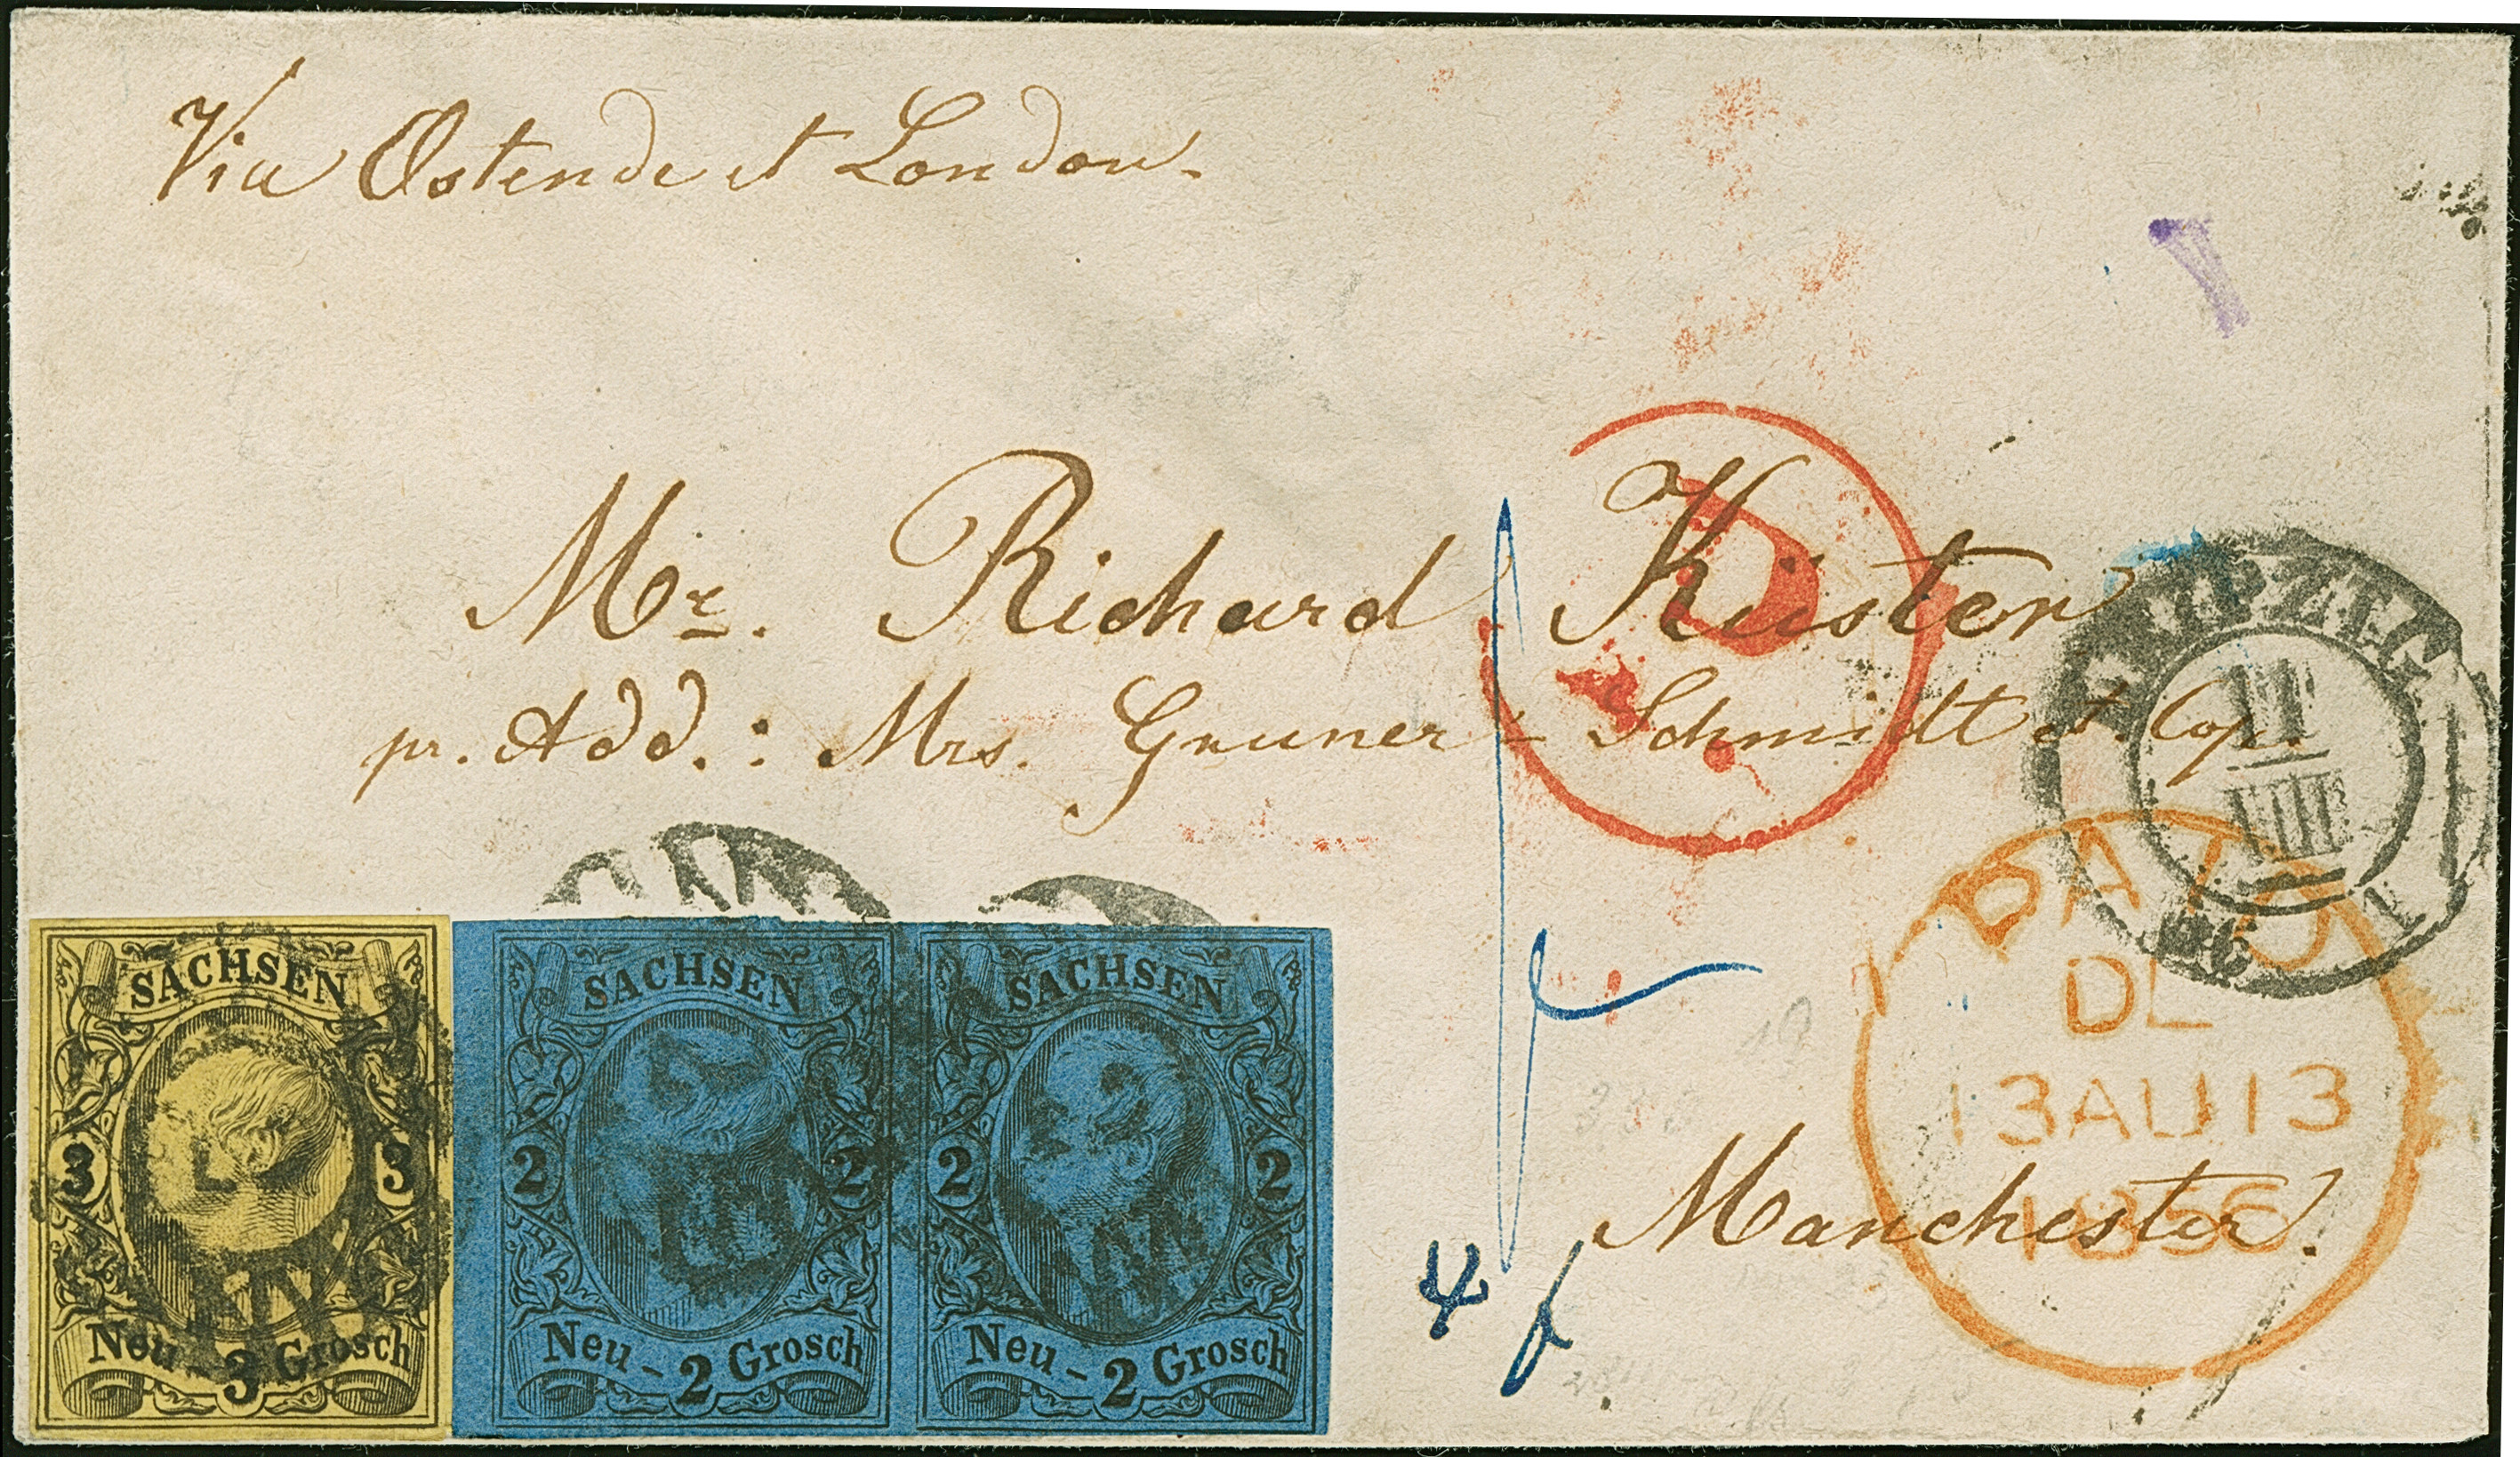 Via Ostende et London.
Mr. Richard Küster
pr. Add.: Mrs. Gruner Schmidt et Cop.
Manchester.
P
LEIPZIG
11
VIII
56
PAID
DL
13AU13
1856
SACHSEN
3 3
Neu-3 Grosch
SACHSEN
2 2
Neu-2 Grosch
SACHSEN
2 2
Neu-2 Grosch